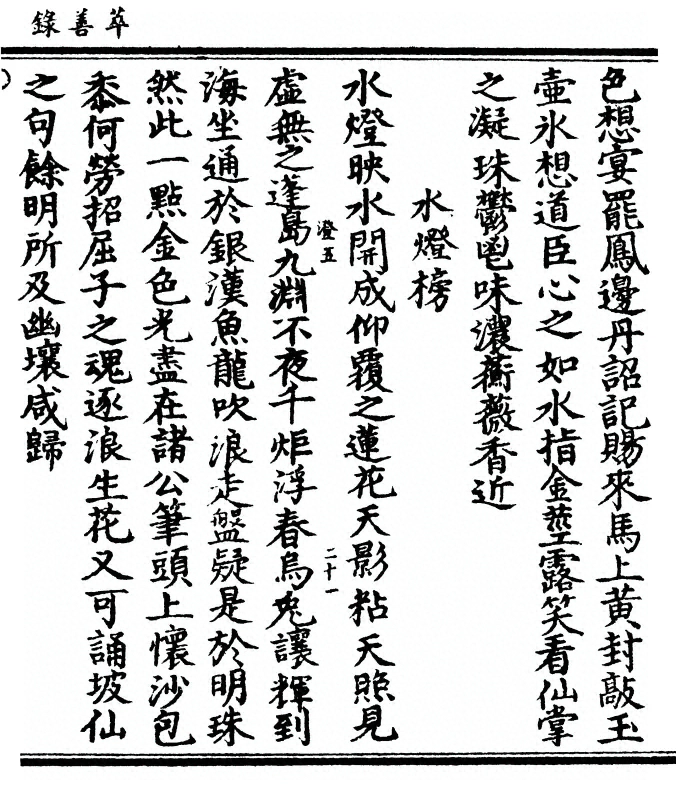 萃善錄
色想宴罷鳳邊丹詔記賜來馬上黃封敲玉
壺氷想道臣心之如水指金莖露笑看仙掌
之凝珠鬱鬯味濃薔薇香近
水燈榜
水燈映水開成仰覆之蓮花天影粘天照見
虛無之逢島九淵不夜千炬浮春烏兔讓輝到
澄五
二十一
海坐通於銀漢魚龍吹浪走盤疑是於明珠
然此一點金色光盡在諸公筆頭上懷沙包
黍何勞招屈子之魂逐浪生花又可誦坡仙
之句餘明所及幽壤咸歸